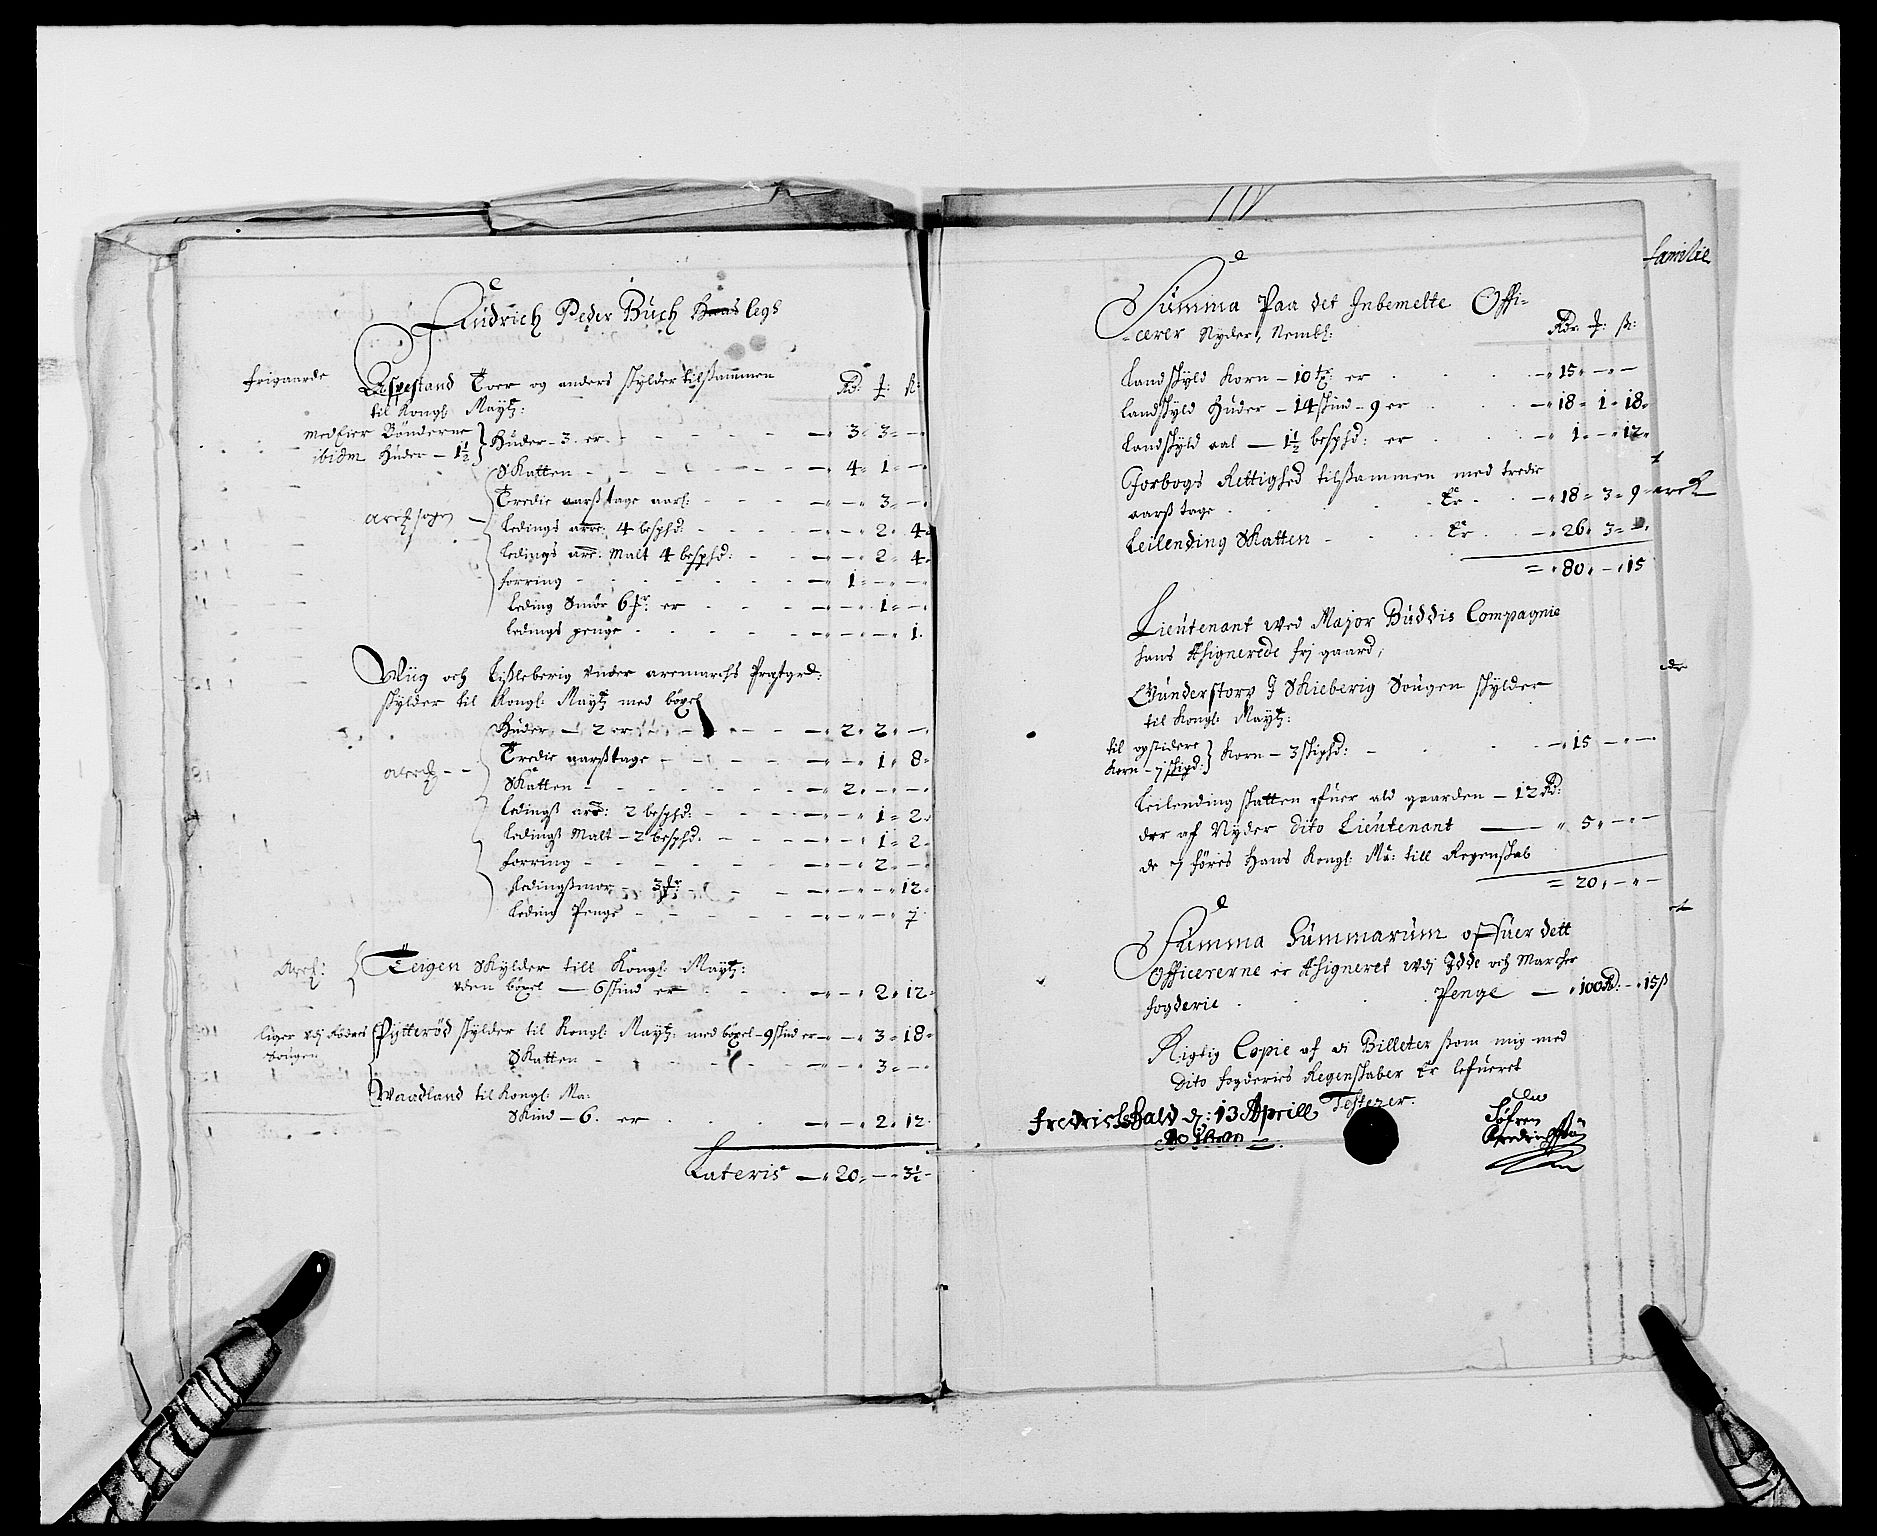 Fendrich Peder Buch legs
frigaarde
Aspestand Toer og anders skylder tilsammen Rd: ƒ: ß:
til Kongl: Mayt:
med Eier Bønderne } Huder - 3 er - - - 3 " 3 " -
ibidm Huder - 1½
Skatten - - - 4 " 1 " -
Tredie aarß tage aarl: - - - 3 " -
ledings 4 bespd: - - - 2 " 4
ledings Malt 4 bespd: - - - 2 " 4
forring - - - 1 " - " -
leding Smør 6 er - - - 1 " -
ledings penge - - - 1
Wiig och Lißleberig vnder aremarchs Prestgrd:
skylder til Kongl: Mayt: med böxel
Huder - 2 er - - 2 " 2 " -
Tredie aarßtage - - - 1 " 8
Skatten - - 2 " - " -
ledingß 2 bespd: - - 1 " 2
ledingß Malt - 2 bespd: - - 1 " 2
forring - - - 2 " -
ledingßmør - 3 - - 12
leding Penge - - - 7
Teigen Skylder till Kongl: Mayt:
vden böxel - 6 skind er - - 2 " 12
liger vdj
Sougen
Pytterød skylder til Kongl: Mayt: med böxel - 9 skind er - - 3 " 18
Skatten - - - 3 " -
Waadland til Kongl: Ma:
Skind - 6. er - - 2 " 12
Lateris - " 20 " - " 3½
familie
Summa Paa det Inbemelte Offi-
cerer Nyder, Nembl: Rdr: ƒ: ß:
Landskyld Korn - 10 er - " 15 " - " -
Landskyld Huder - 14 skind - 9 er - " 18 " 1 " 18
Landskyld aal - 1½ bespd: er - " 1 " - " 12
Forbogs Rettighed tilsammen med tredie
aarß tage - Er - " 18 " 3 " 9
Leilending Skatten - Er - " 26 " 3 "
= " 80 " - " 15
Lieutenant wed Major Buddis Compagnie
hans Assignerede frj gaard,
Gunderstorp I Skieberig Sougen skylder
til Kongl: Mayt:
til opsidere } Korn - 3 skipd: - - " 15 " - " -
Korn - 7 skipd:
Leilending skatten ofuer ald gaarden - 12 Rd:
der af Nyder Dito Lieutenant - " 5 " - " -
de 7 føres Hans Kongl: Ma: till Regenskab
= 20 " - " -
Summa Summarum offuer dett
Officererne er Assigneret vdj Idde och Marcher
fogderie . . . Penge - " 100 Rd: - " 15 ß
Rigtig Copie af di Billeter ßom mig med
Dito fogderies Regenskaber Er lefueret
Testerer.
Fredrichshald d: 13 Aprill
Ao
Søfren